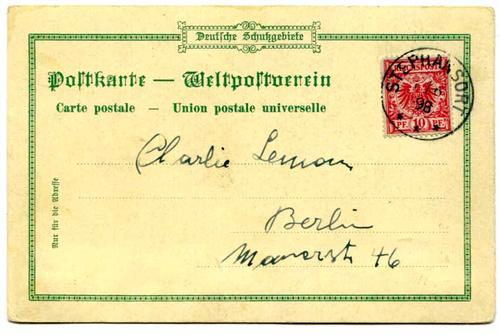 Deutsche Schutzgebiete
Postkarte — Weltpostverein
Carte postale — Union postale universelle
STEPHANSORT
98
PF 10 PF
Nur für die Adresse
Charlie
Berlin
46